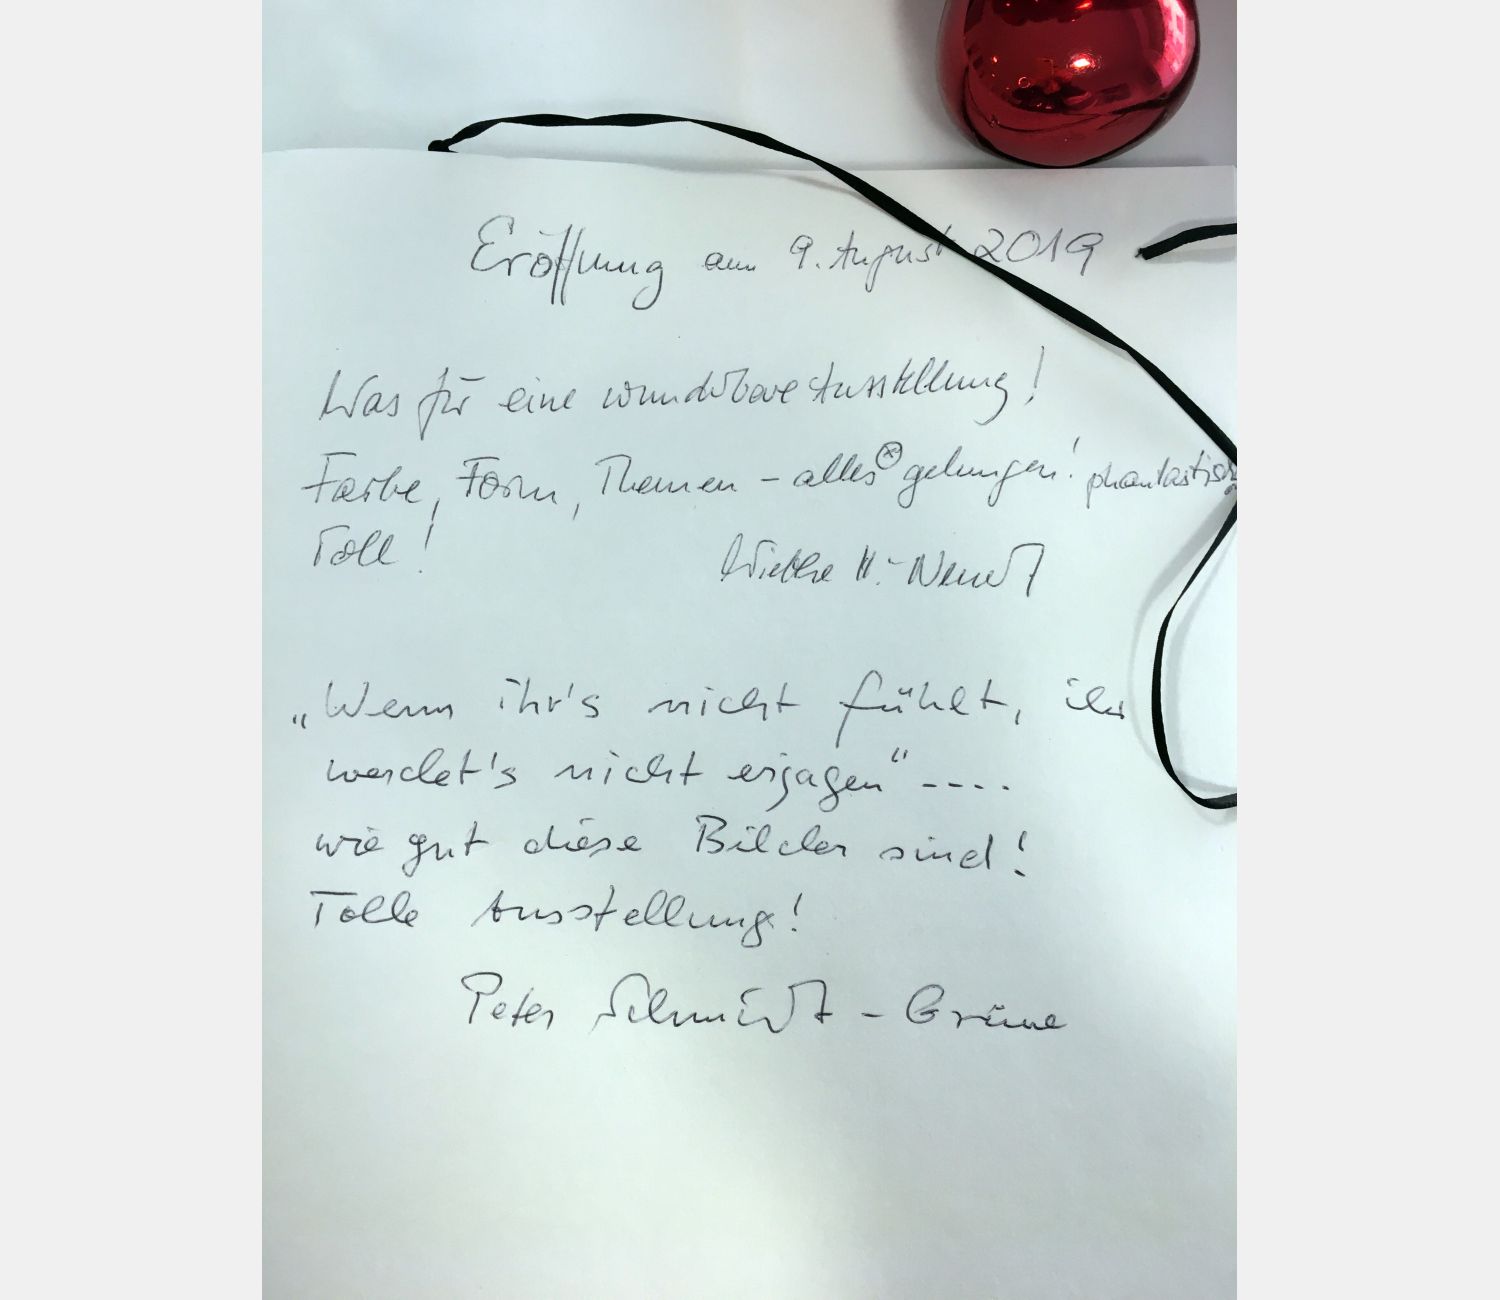 Eröffnung am 9. August 2019
Was für eine wunderbare Ausstellung!
Farbe, Form, Themen – alles ⊗ gelungen! phantastisch
Toll!
Wiebke H.-
„Wenn ihr's nicht fühlt, ihr
werdet's nicht erjagen“ ----
wie gut diese Bilder sind!
Tolle Ausstellung!
Peter Schmidt - Grüne